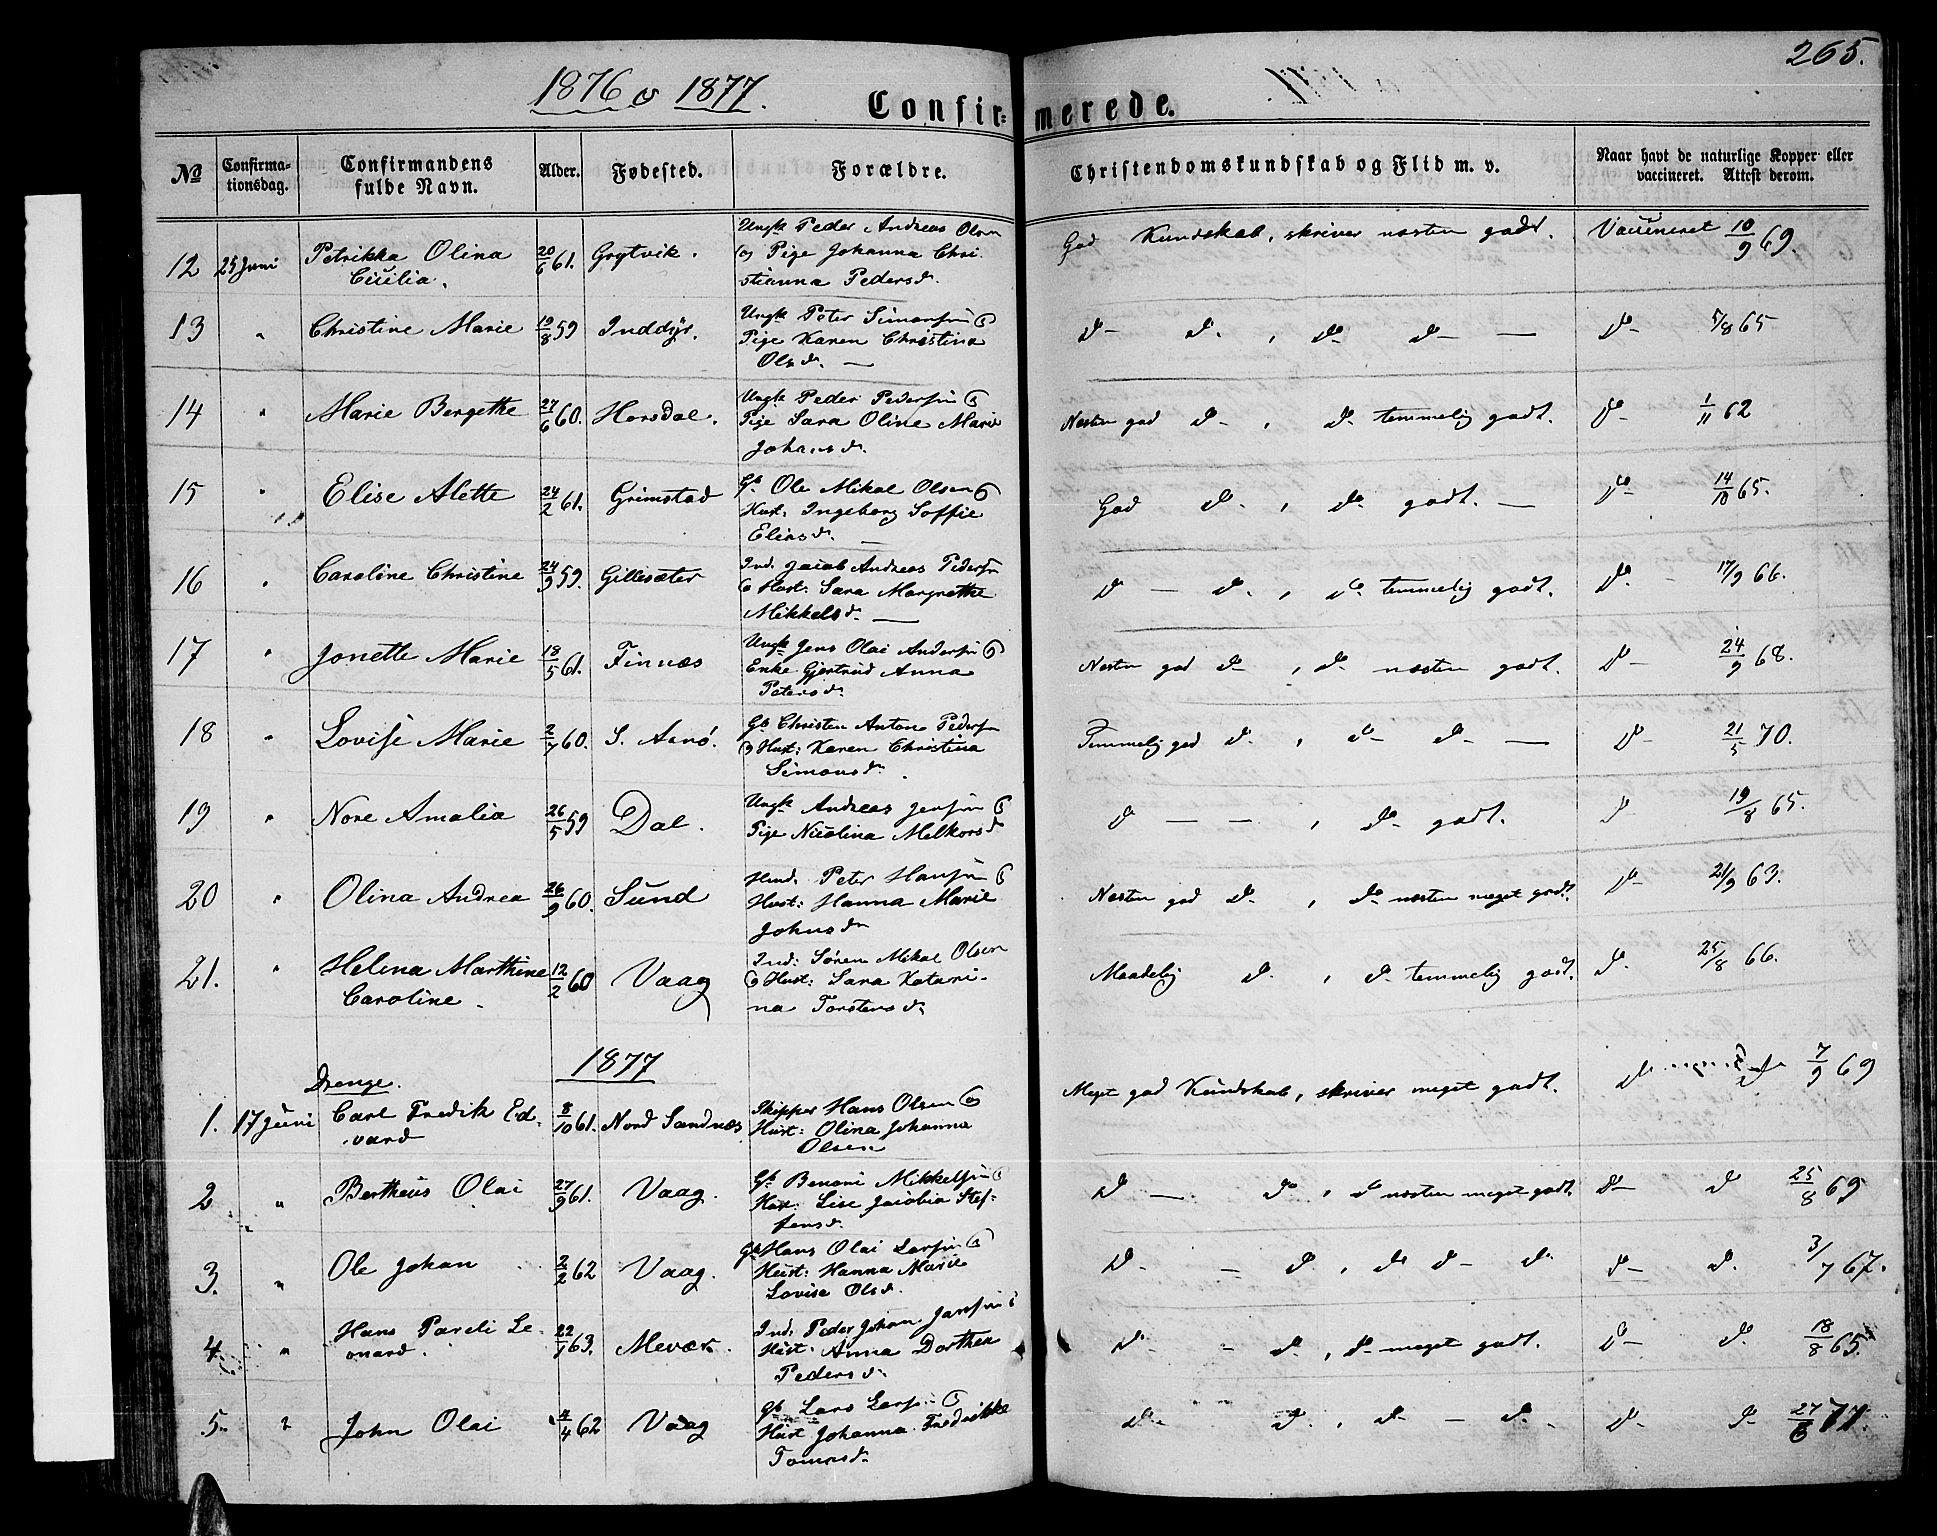 265.
1876 & 1877.
Confirmerede.
No
Confirmationsdag.
Confirmandens fulde Navn.
Alder.
Fødested.
Forældre.
Christendomskundskab og Flid m. v.
Naar havt de naturlige Kopper eller vaccineret. Attest derom.
12 25 Juni Petrikka Olina Cicilia. 20/6 61. Grytvik. Ungk Peder Andreas Olsen og Pige Johanna Christianna Pedersd. God Kundskab, skriver næsten godt. Vaccineret 10/9 69.
13 " Christine Marie 19/8 59 Inddyr. Ungk Peter Simonsen & Pige Karen Christina Olsd. — Do Do, Do Do — Do 5/8 65
14 " Marie Bergethe 27/6 60. Horsdal. Ungk Peder Pedersen & Pige Sara Oline Marie Johansd. Næsten god Do, Do temmelig godt. Do 1/11 62
15 " Elise Alette 24/2 61. Grimstad Gb. Ole Mikal Olsen & Hust: Ingeborg Soffie Eliasd. — God Do, Do godt. — Do 14/10 65.
16 " Caroline Christine 24/9 59. Gillesæter Ind. Jacob Andreas Pedersen & Hust: Sara Margrethe Mikkelsd. — Do — Do, Do temmelig godt. Do 17/9 66.
17 " Jonette Marie 18/5 61. Finnæs Ungk Jens Olai Andersen & Enke Gjertrud Anna Petersd. Næsten god Do, Do næsten godt. Do 24/9 68.
18 " Lovise Marie 2/7 60. S. Arnø. Gb Christen Anton Pedersen & Hust: Karen Christina Simonsd. Temmelig god Do, Do Do — Do 21/5 70.
19 " Nore Amalia 26/5 59 Dal. Ungk Andreas Jensen & Pige Nicolina Melkorsd Do — —, Do godt. Do 19/8 65.
20 " Olina Andrea 26/9 60. Sund Hmd. Peter Hansen & Hust: Hanna Marie Johnsd Næsten god Do, Do næsten meget godt. Do 21/9 63.
21. " Helena Marthine Caroline 12/2 60 Vaag Ind: Søren Mikal Olsen & Hust: Sara Katarina Torstensd. Maadelig Do, Do temmelig godt. Do 25/8 66.
1877
Drenge.
1. 17 Juni Carl Fredik Edvard 8/10 61. Nord Sandnæs Skipper Hans Olsen & Hust: Olina Johanna Olsen Meget god Kundskab, skriver meget godt. Do 7/9 69
2 " Bertheus Olai 27/9 61. Vaag. Gb. Benoni Mikkelsen & Hust: Lise Jacobia Steffensd. Do — Do, Do næsten meget godt. Do Do 25/8 69
3. " Ole Johan 2/2 62 Vaag. Gb Hans Olai Larsen & Hust: Hanna Marie Lovise Olsd. Do — Do, Do Do Do Do Do 3/7 67.
4. " Hans Pareli Leonard. 22/1 63. Mevær. Ind: Peder Johan Jansen & Hust: Anna Dorthea Pedersd. Do — Do, Do meget godt. Do Do 18/8 65.
5. " John Olai 4/4 62 Vaag Gb Lars Larsen & Hust Johanna Fredrikke Tomasd. Do Do, Do — Do Do Do 27/6 77.